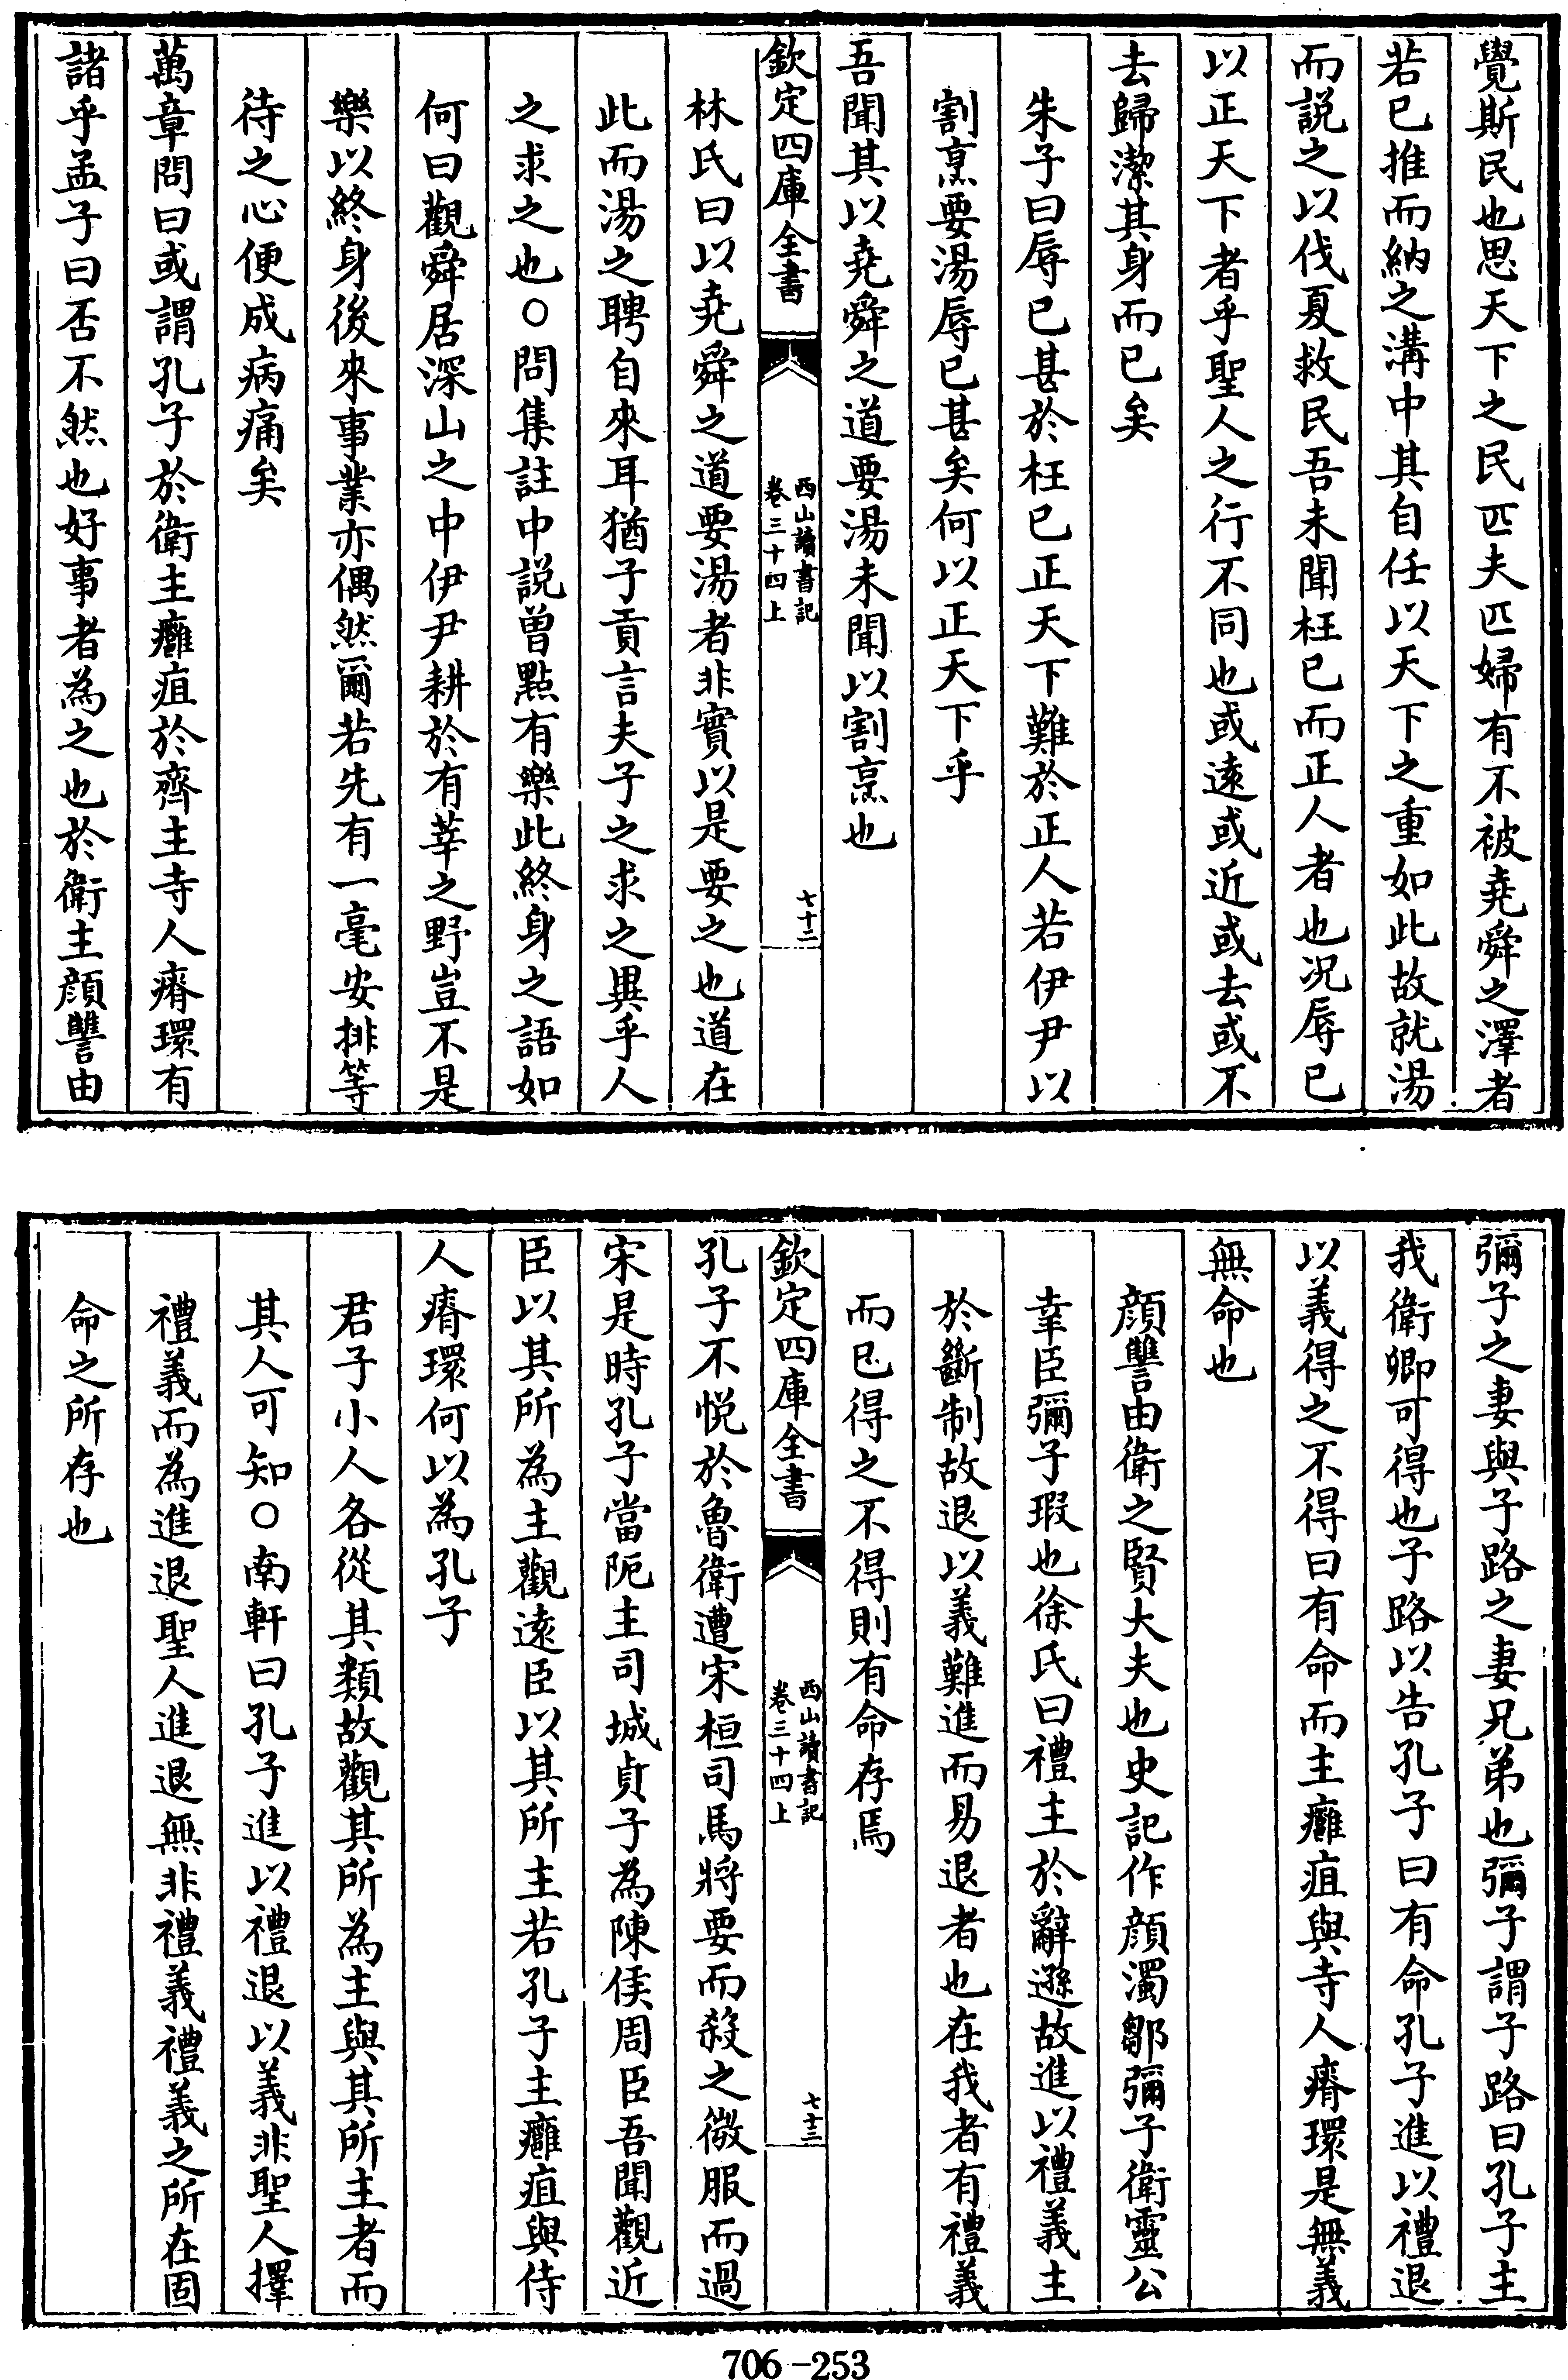 覺斯民也思天下之民匹夫匹婦有不被堯舜之澤者
若已推而納之溝中其自任以天下之重如此故就湯
而説之以伐夏救民吾未聞枉已而正人者也况辱已
以正天下者乎聖人之行不同也或逺或近或去或不
去歸潔其身而已矣
朱子曰辱已甚於枉已正天下難於正人若伊尹以
割烹要湯辱已甚矣何以正天下乎
吾聞其以堯舜之道要湯未聞以割烹也
欽定四庫全書
西山讀書記
卷三十四上
七十二
林氏曰以堯舜之道要湯者非實以是要之也道在
此而湯之聘自來耳猶子貢言夫子之求之異乎人
之求之也○問集註中説曽點有樂此終身之語如
何曰觀舜居深山之中伊尹耕於有莘之野豈不是
樂以終身後來事業亦偶然爾若先有一毫安排等
待之心便成病痛矣
萬章問曰或謂孔子於衛主癰疽於齊主寺人瘠環有
諸乎孟子曰否不然也好事者為之也於衛主顔讐由
彌子之妻與子路之妻兄弟也彌子謂子路曰孔子主
我衛卿可得也子路以告孔子曰有命孔子進以禮退
以義得之不得曰有命而主癰疽與寺人瘠環是無義
無命也
顔讐由衛之賢大夫也史記作顔濁鄒彌子衛靈公
幸臣彌子瑕也徐氏曰禮主於辭遜故進以禮義主
於斷制故退以義難進而易退者也在我者有禮義
而已得之不得則有命存焉
欽定四庫全書
西山讀書記
卷三十四上
七十三
孔子不悦於魯衛遭宋桓司馬將要而殺之微服而過
宋是時孔子當阨主司城貞子為陳侯周臣吾聞觀近
臣以其所為主觀逺臣以其所主若孔子主癰疽與侍
人瘠環何以為孔子
君子小人各從其類故觀其所為主與其所主者而
其人可知○南軒曰孔子進以禮退以義非聖人擇
禮義而為進退聖人進退無非禮義禮義之所在固
命之所存也
706-253